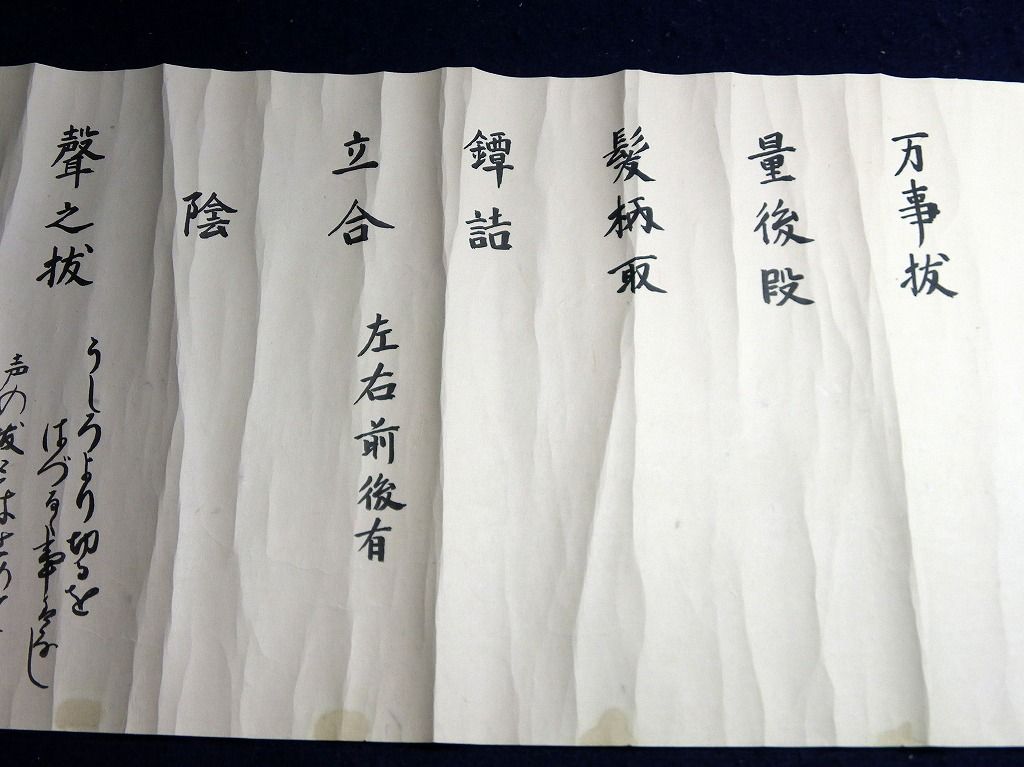 万事抜
量後段
髪柄取
鐔詰
立合
左右前後有
陰
聲之抜
うしろより切るを
はづる事なし
声の抜とは